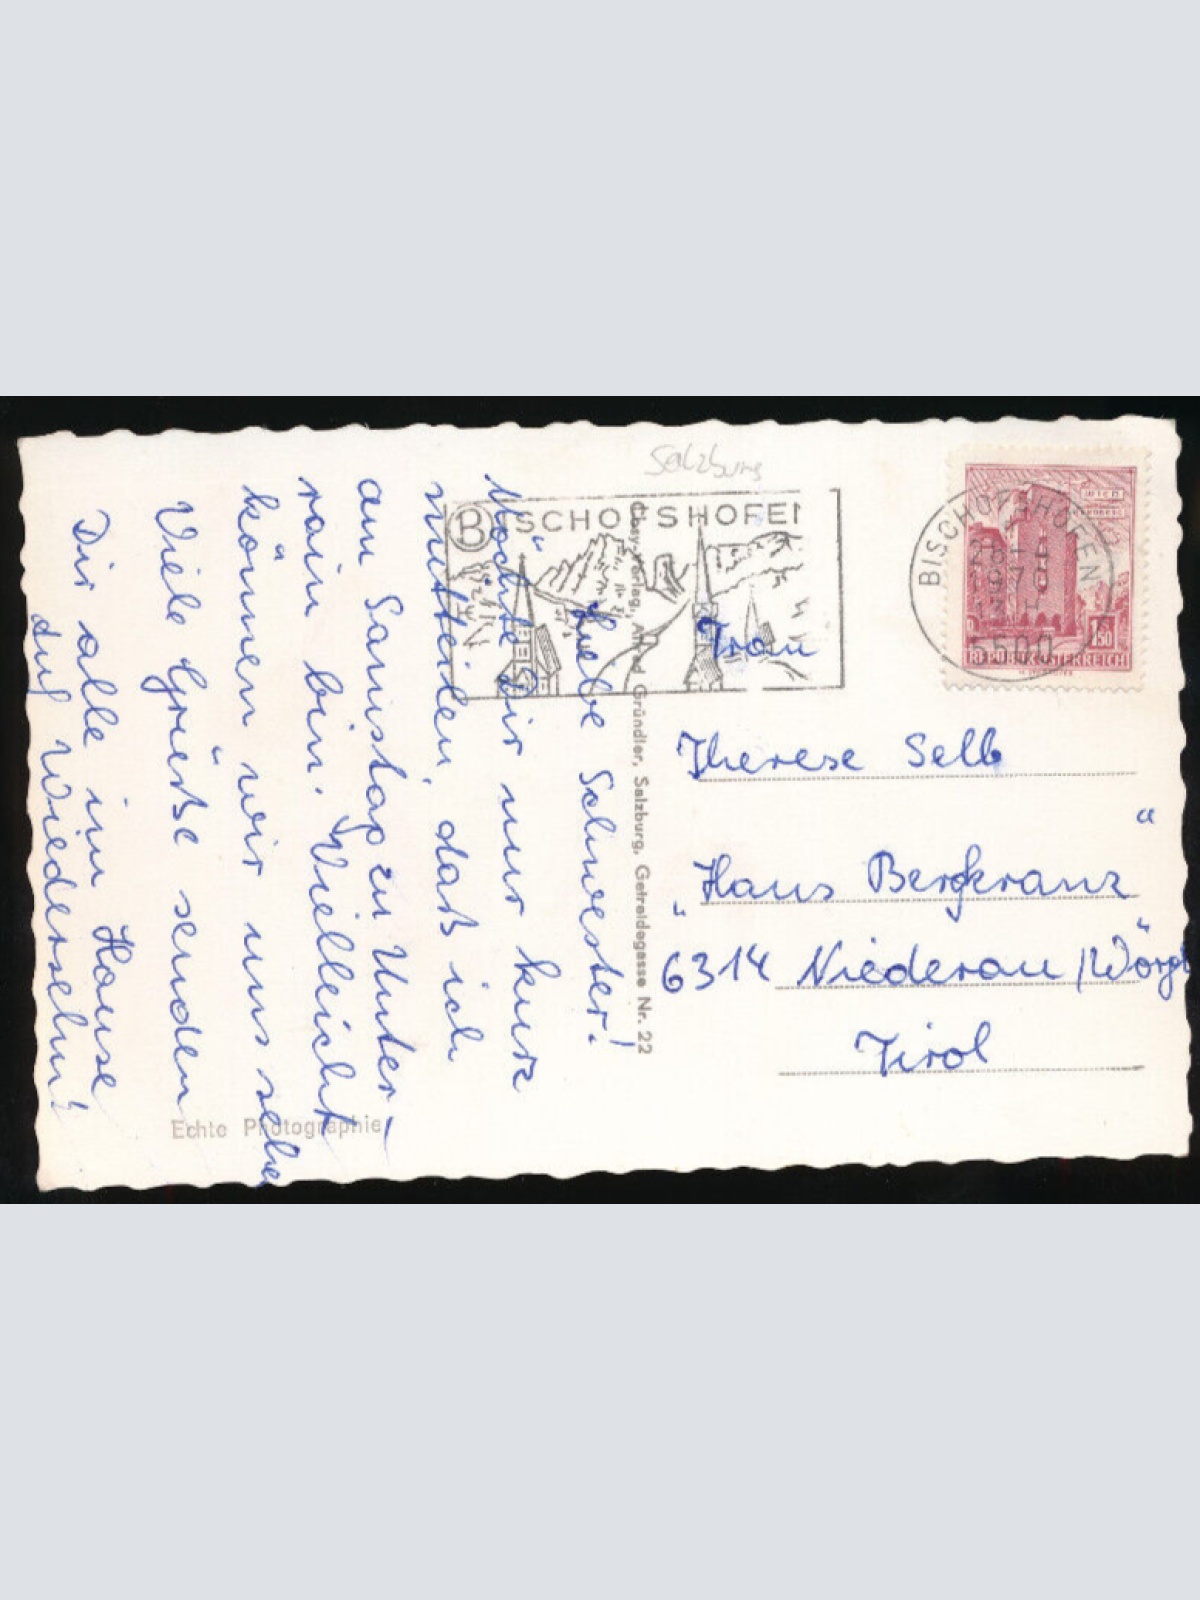 Salzburg
BISCHOFSHOFEN
BISCHOFSHOFEN
5500
WIEN
1.50
REPUBLIK ÖSTERREICH
Liebe Schwester!
Möchte Dir nur kurz
mitteilen, daß ich
am Samstag zu Unter-
rain bin. Vielleicht
können wir uns sehen
Viele Grüße senden
Dir alle im Hause
Auf Wiedersehn!
Cosy-Verlag, Alfred Gründler, Salzburg, Getreidegasse Nr. 22
Frau
Therese Selb
"Haus Bergkranz"
6314 Niederau /Wörgl
Tirol
Echte Photographie